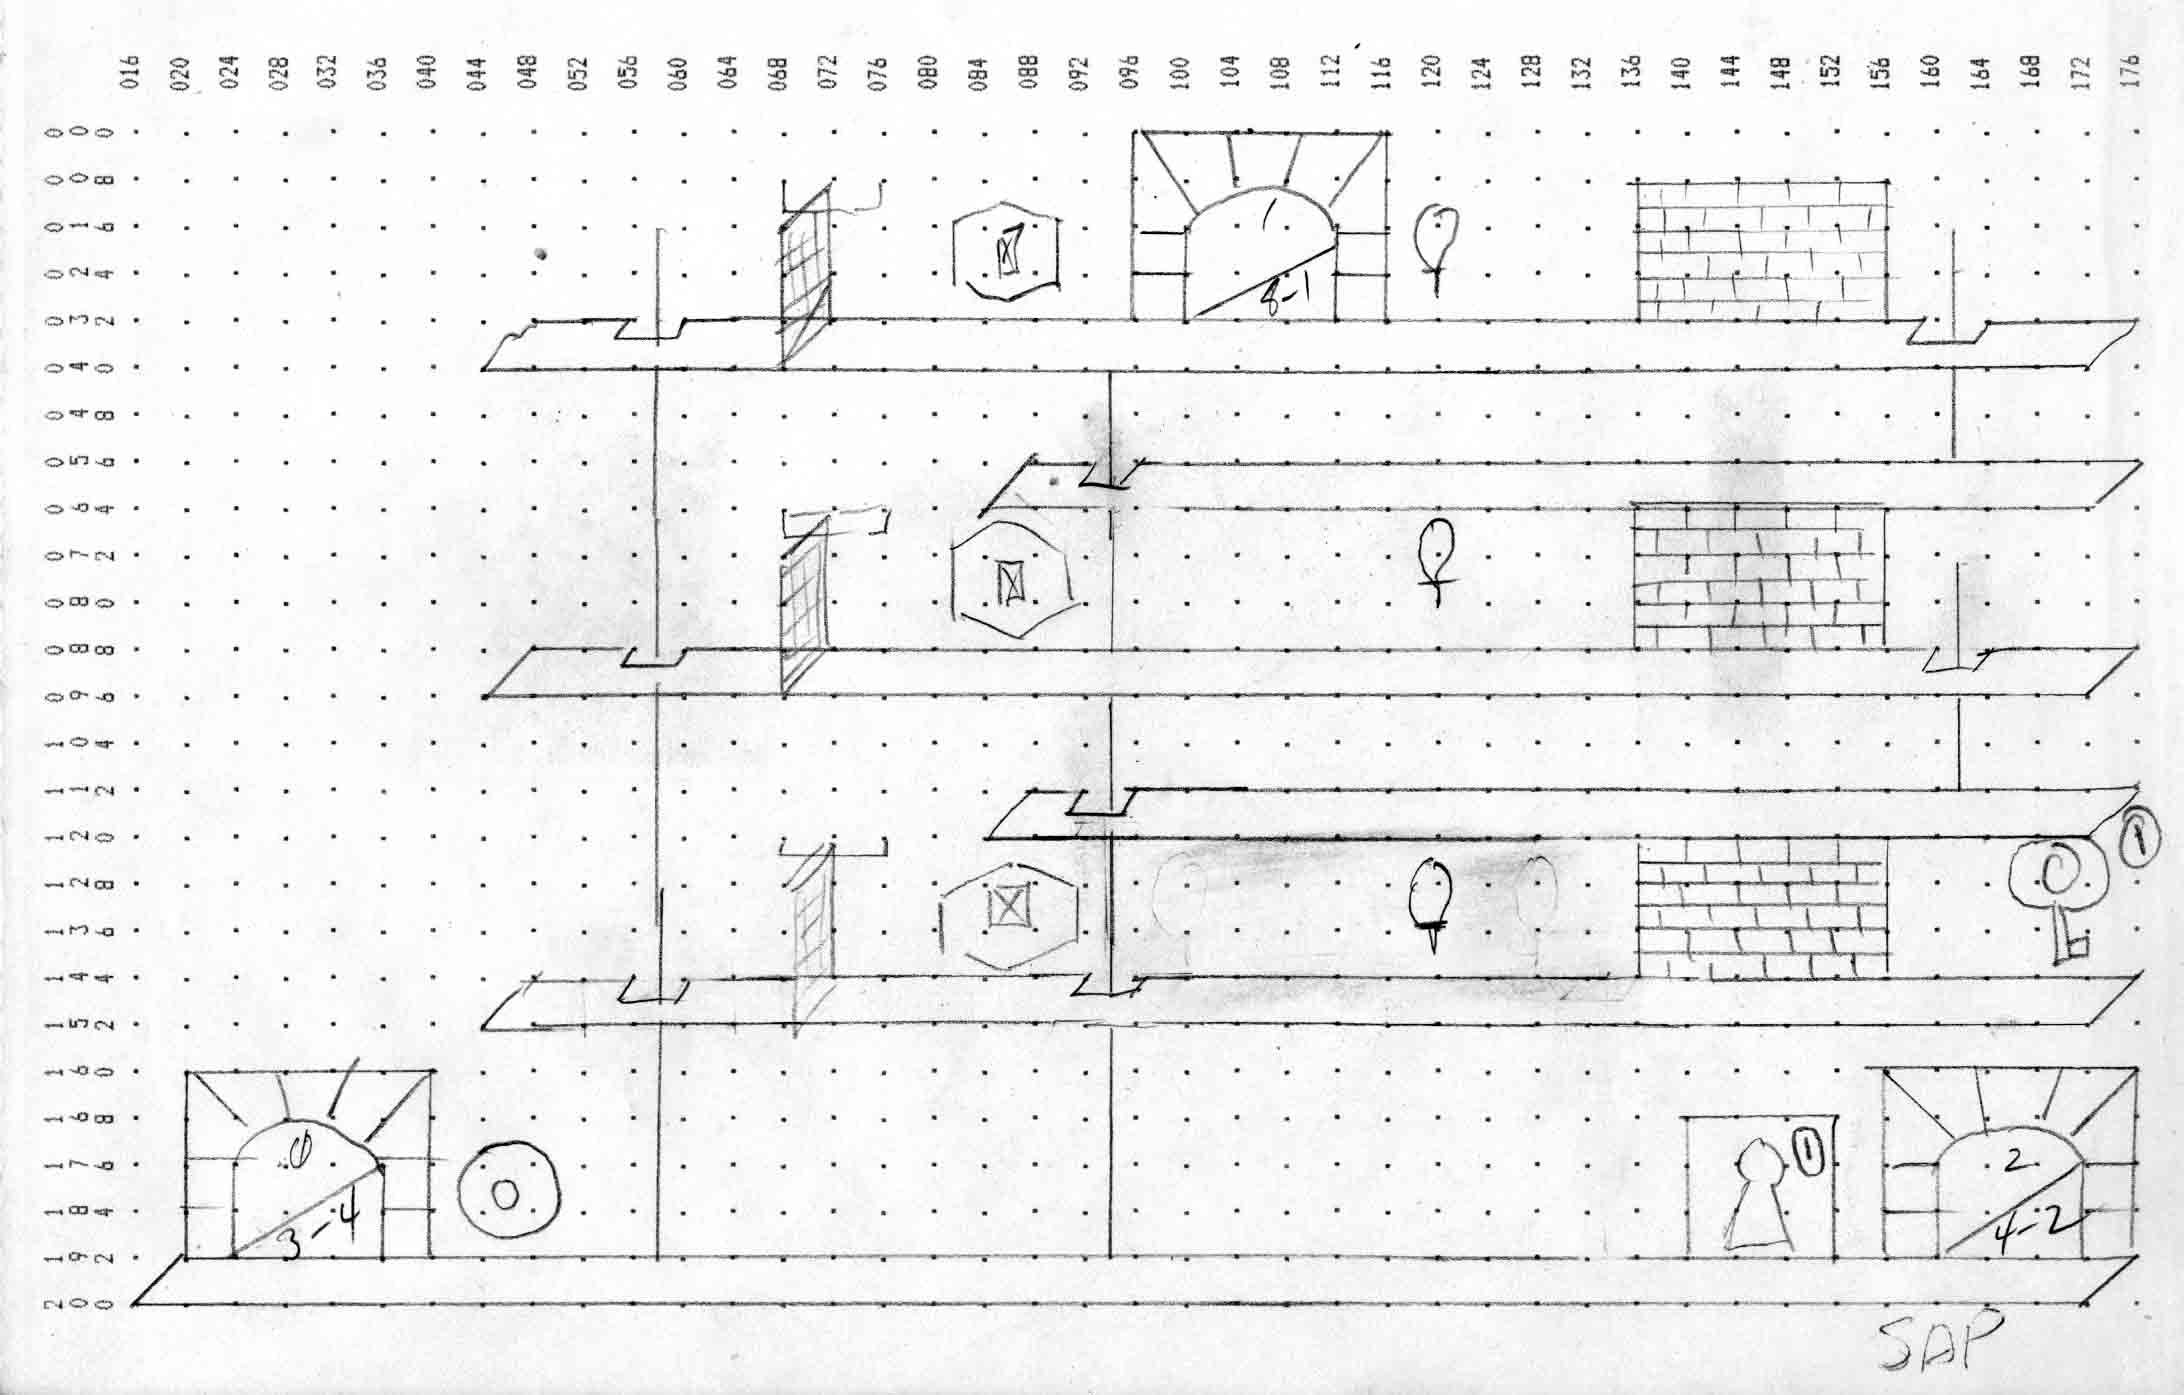 016 020 024 028 032 036 040 044 048 052 056 060 064 068 072 076 080 084 088 092 096 100 104 108 112 116 120 124 128 132 136 140 144 148 152 156 160 164 168 172 176
000
008
016
1
024
8-1
032
040
048
056
064
072
080
088
096
104
112
120
1
128
136
144
152
160
168
0
1
2
176
184
3-4
4-2
192
200
SAP